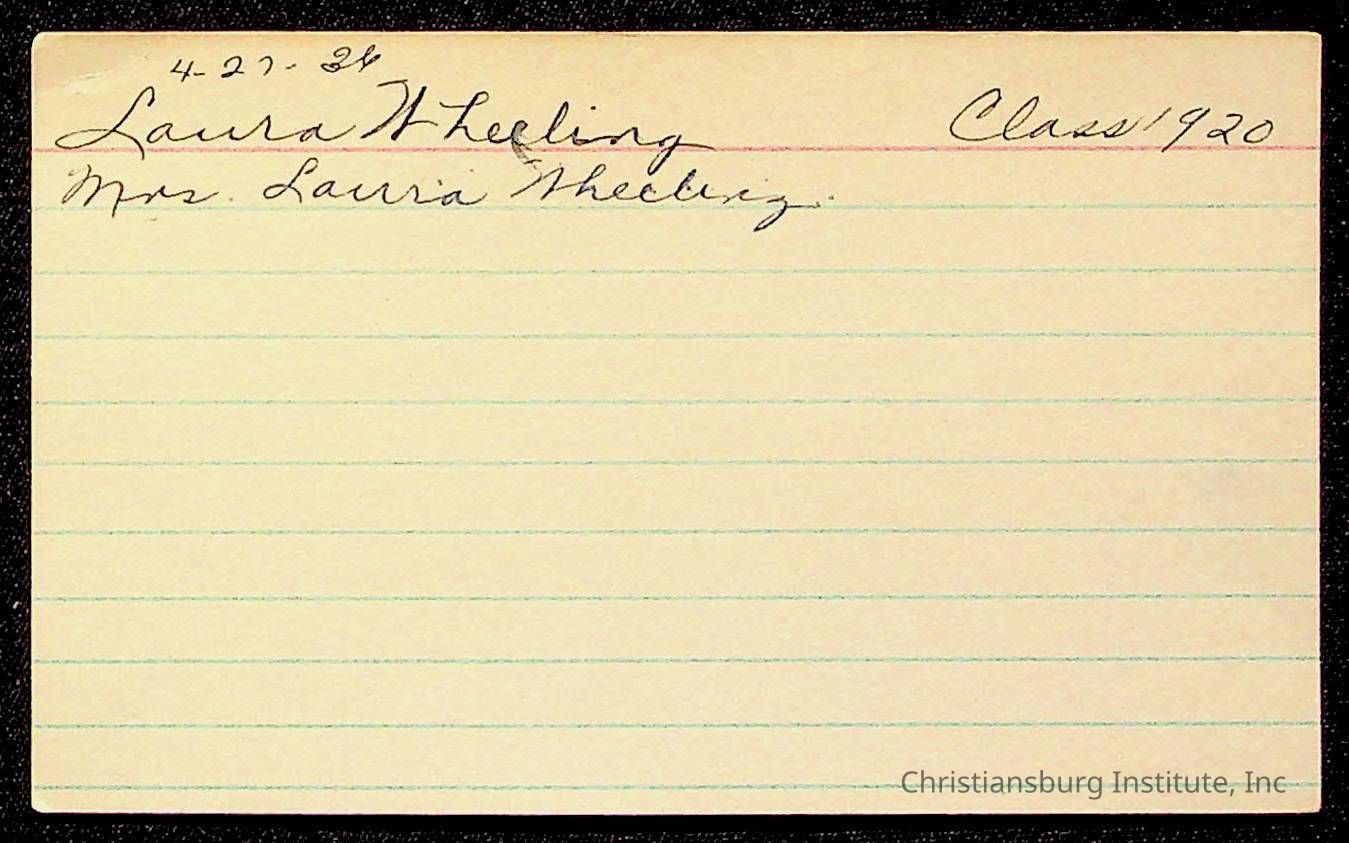 4-27-36
Laura Wheeling Class 1920
Mrs. Laura Wheeling.
Christiansburg Institute, Inc